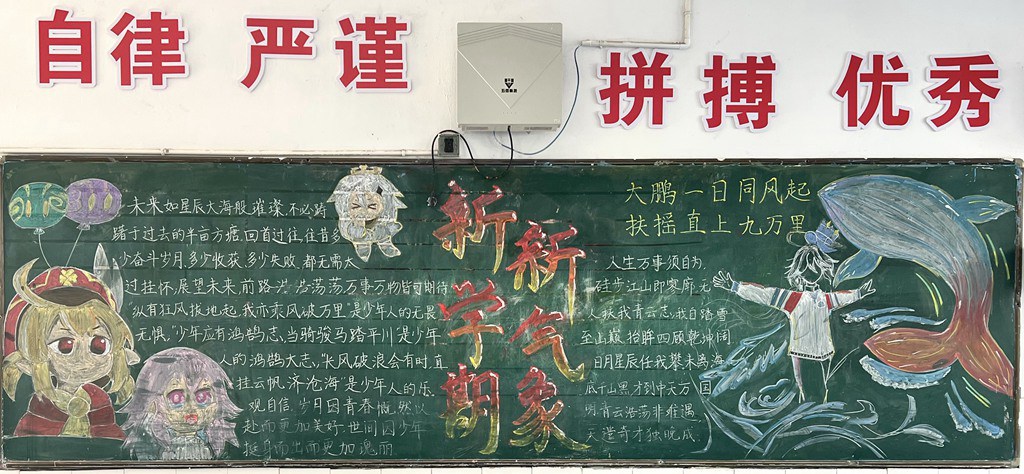 自律 严谨
拼搏 优秀
未来如星辰大海般璀璨,不必踌
躇于过去的半亩方塘,回首过往,往昔多
少奋斗岁月,多少收获,多少失败,都无需太
过挂怀,展望未来,前路浩浩荡荡万事万物皆可期待
纵有狂风拔地起,我亦乘风破万里是少年人的无畏
无惧。“少年应有鸿鹄志,当骑骏马踏平川”是少年
人的鸿鹄大志,“长风破浪会有时,直
挂云帆济沧海”是少年人的乐
观自信,岁月因青春慨然以
赴而更加美好,世间因少年
挺身而出而更加瑰丽
新学期
新气象
大鹏一日同风起
扶摇直上九万里
人生万事须自为,
跬步江山即寥廓,无
人扶我青云志,我自踏雪
至山巅,抬眸四顾乾坤阔
日月星辰任我攀,未离海
底千山黑,才到中天万国
明,青云浩荡非难遇,
天造奇才独晚成.